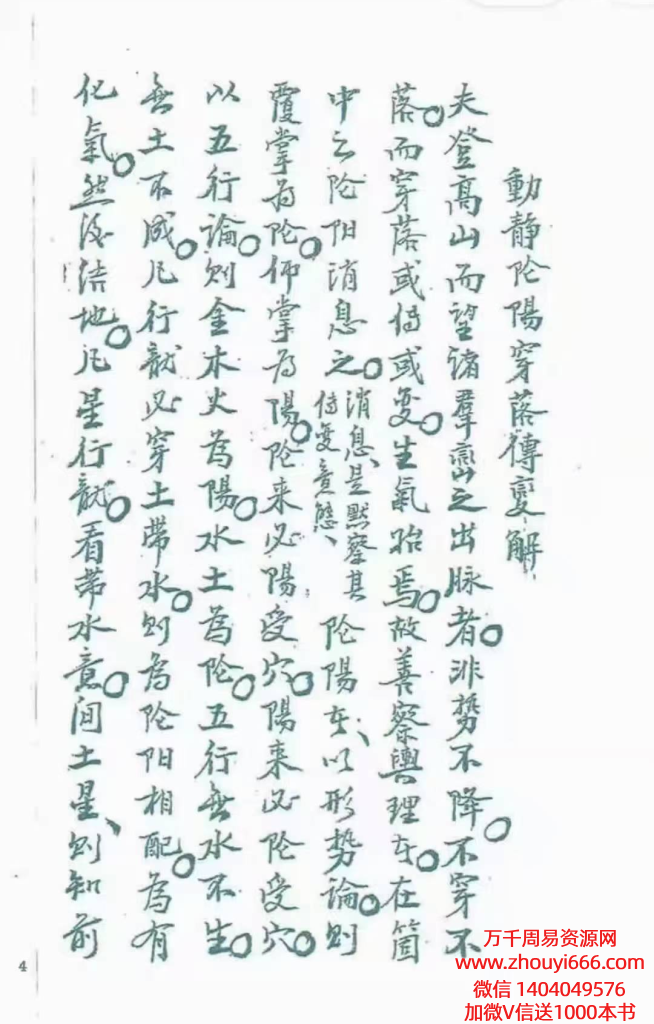 動静阴陽穿落傳变解
夫登髙山而望诸羣髙山之出脉者。非勢不降。不穿不
落。而穿落或傳或变。生氣胎焉。故善察輿理者。在箇
中之阴阳消息之。消息、是黙察其傳变意態、阴陽者、以形勢論。则
覆掌為阴。仰掌為陽。阴来必陽受穴。陽来必阴受穴。
以五行論。则金木火為陽。水土為阴。五行無水不生。
無土不成。凡行龍必穿土帶水。则為阴阳相配。為有
化氣。然後结地。凡星行龍。看帶水意。间土星、则知前
4
万千周易资源网
www.zhouyi666.com
微信 1404049576
加微V信送1000本书